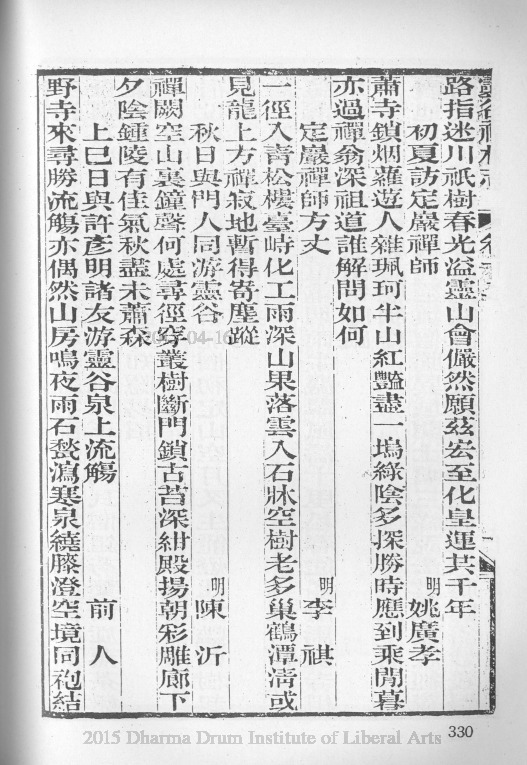 路指迷川祇樹春光溢靈山會儼然願茲宏至化皇運其千年
初夏訪定巖禪師 明 姚廣孝
蕭寺鎖烟蘿遊人雜珮珂半山紅艷盡一塢綠陰多探勝時應到乘閒暮
亦過禪翁深祖道誰解問如何
定巖禪師方丈 明 李祺
一徑入青松樓臺峙化工雨深山果落雲入石牀空樹老多巢鶴潭清或
見龍上方禪寂地暫得寄塵蹤
秋日與門人同游靈谷 明 陳沂
禪闕空山裏鐘聲何處尋徑穿叢樹斷門鎖古苔深紺殿揚朝彩雕廊下
夕陰鍾陵有佳氣秋盡未蕭森
上巳日與許彥明諸友游靈谷泉上流觴 前人
野寺來尋勝流觴亦偶然山房鳴夜雨石甃瀉寒泉繞滕澄空境同袍結
330
2015 Dharma Drum Institute of Liberal Arts